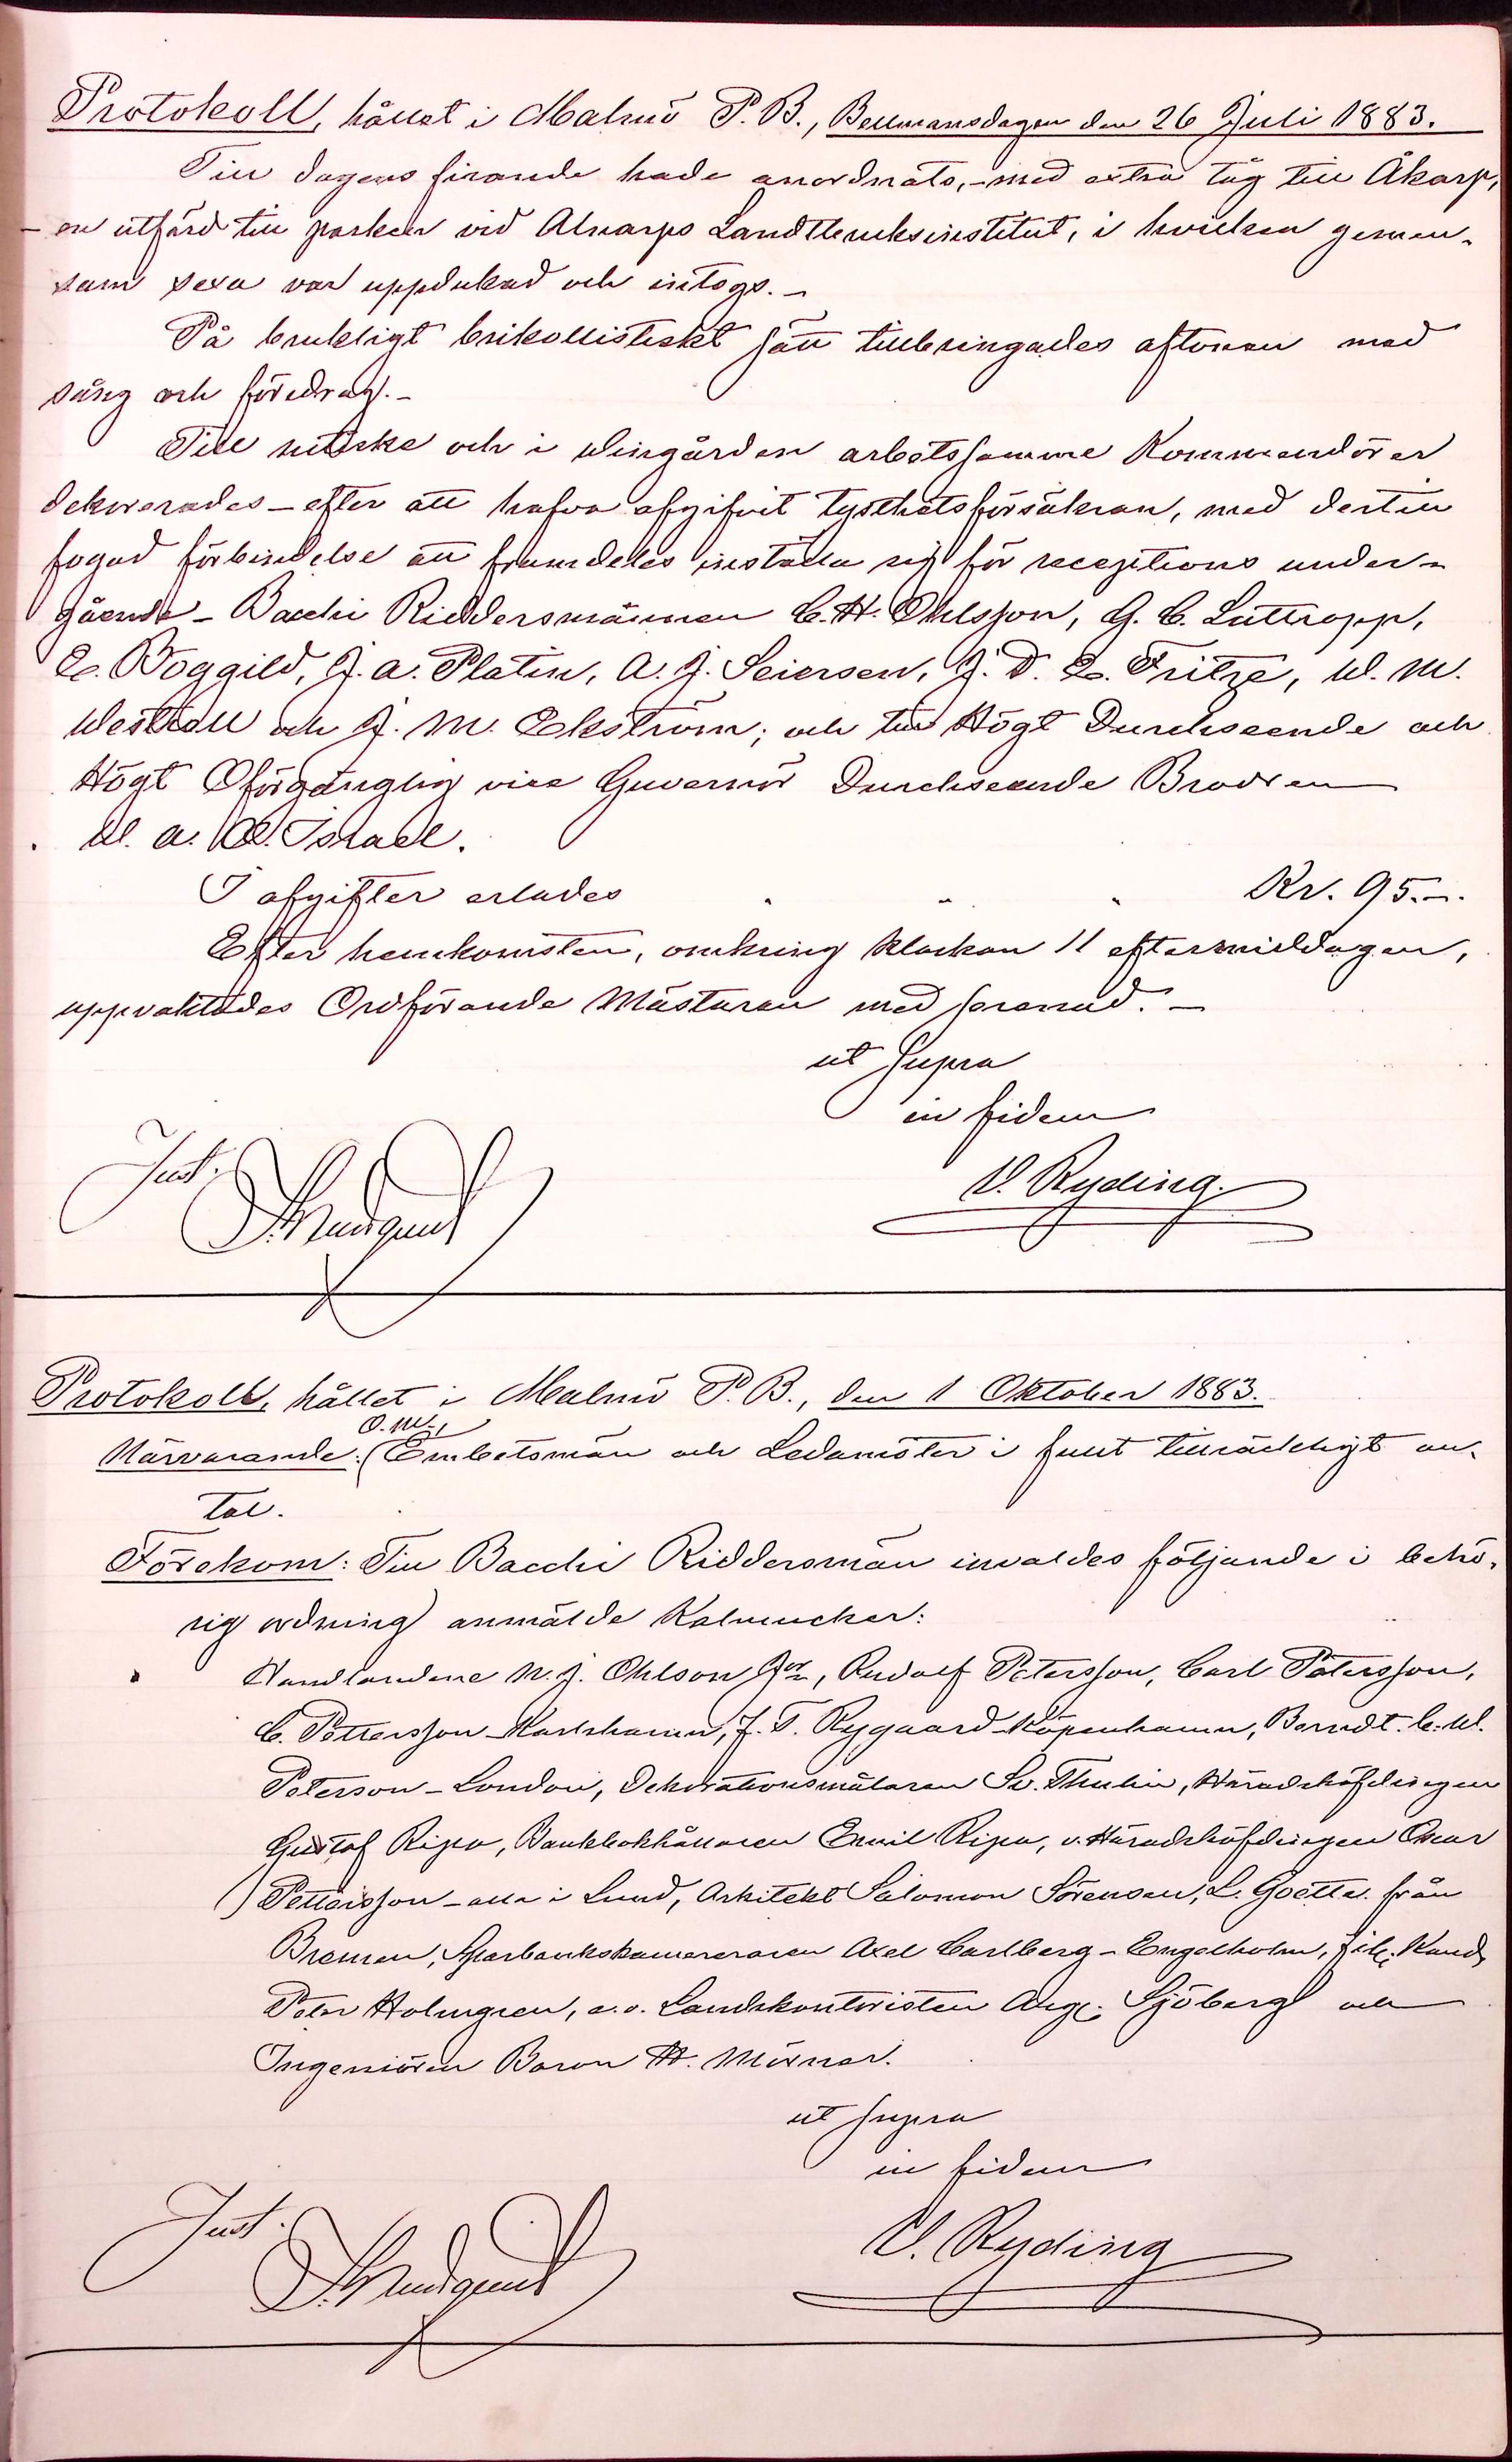 Protokoll, hållet i Malmö P. B., Bellmansdagen den 26 Juli 1883.
Till dagens firande hade anordnats, - med extra tåg till Åkarp,
- en utfärd till parken vid Alnarps Landtbruksinstitut, i hvilken gemen-
sam sexa var uppdukad och intogs. -
På brukligt brikollistiskt sätt tillbringades aftonen med
sång och föredrag. -
Till nitiske och i Vingården arbetssamme Kommendörer
dekorerades - efter att hafva afgifvit tysthetsförsäkran, med dertill
fogad förbindelse att framdeles inställa sig för receptions under-
gående - Bacchi Riddersmännen C. H. Ohlsson, G. C. Luttropp,
E. Böggild, J. A. Platin, A. J. Seiersen, J. D. E. Fritze, W. M.
Westholl och J. M. Ekström; och till Högt Durchseende och
Högt Oförgänglig vice Guvernör Durchseende Brodren
W. A. Israel.
I afgifter erlades " " " Kr. 95.-.
Efter hemkomsten, omkring klockan 11 eftermiddagen,
uppvaktades Ordförande Mästaren med serenad. -
ut supra
in fidem
Just. V. Ryding.
Protokoll, hållet i Malmö P. B., den 1 Oktober 1883.
O. M.,
Närvarande: Embetsmän och Ledamöter i fullt tillräckligt an-
tal.
Förekom: Till Bacchi Riddersmän invaldes följande i behö-
rig ordning anmälde Kalmucker:
Handlandene N. J. Ohlson Jor, Rudolf Petersson, Carl Petersson,
C. Pettersson - Karlshamn, J. T. Rygaard - Köpenhamn, Berndt. C. W.
Peterson - London, Dekorationsmålaren Sv. Thulin, Häradshöfdingen
Gustaf Ripa, Bankbokhållaren Emil Ripa, v. Häradshöfdingen Oscar
Pettersson - alla i Lund, Arkitekt Salomon Sörensen, L. Goette från
Bremen, Sparbankskamereraren Axel Carlberg - Engelholm, Fil. Kand.
Peter Holmgren, e. o. Landskontoristen Aug. Sjöberg och
Ingeniören Baron H. Mörner.
ut supra
in fidem
Just. V. Ryding